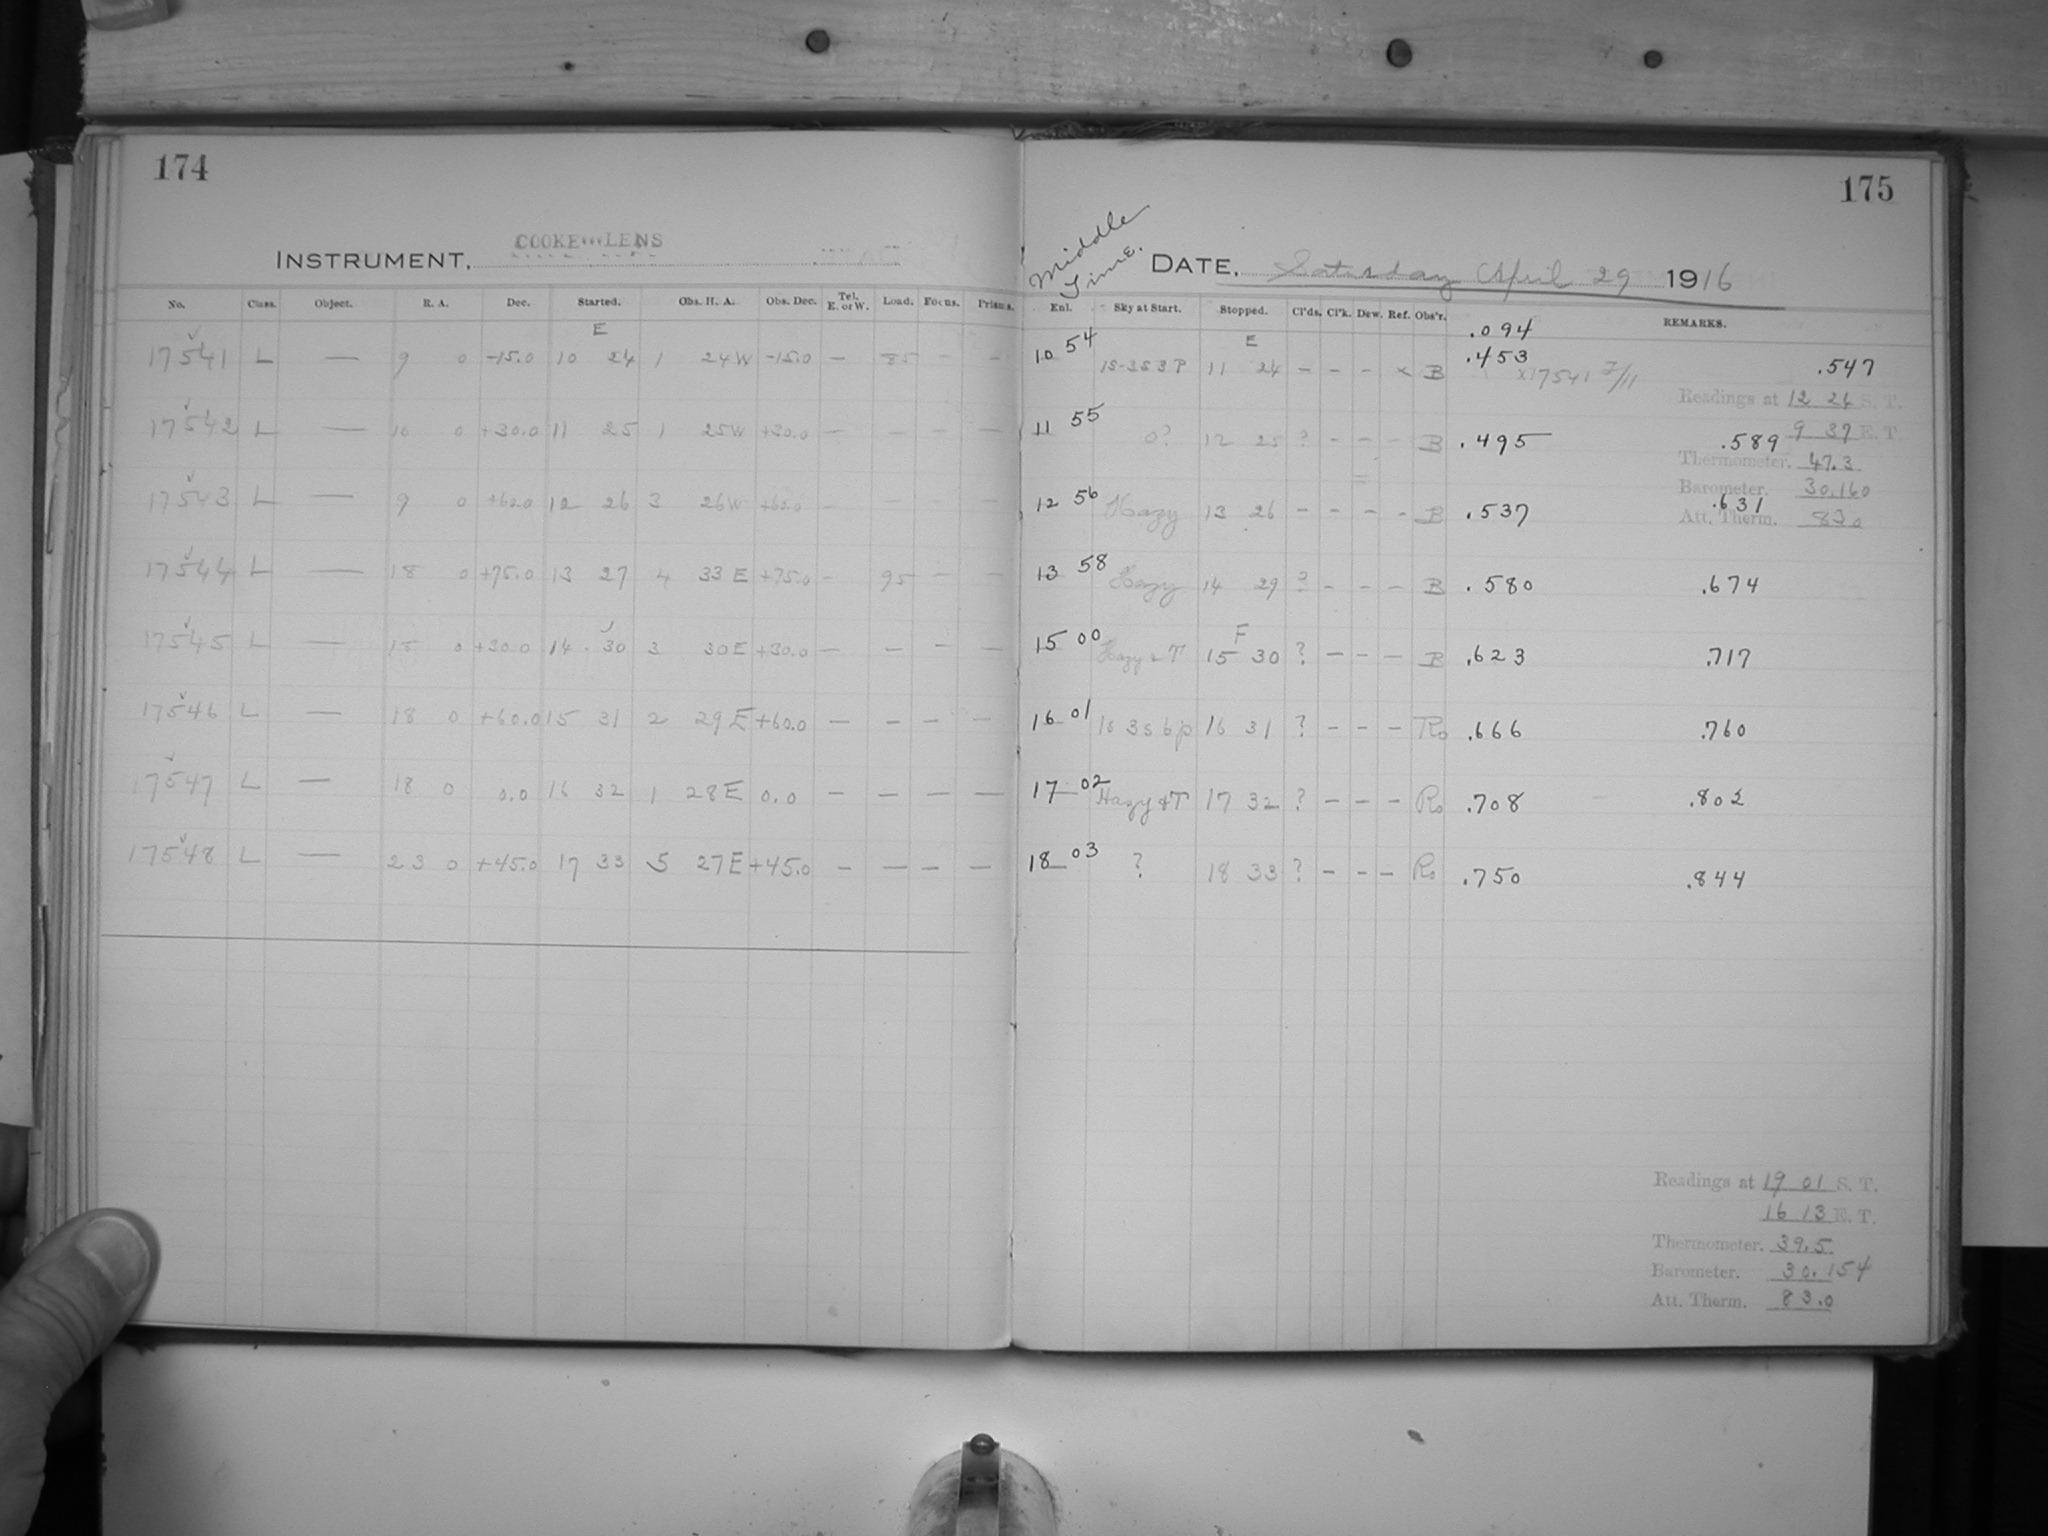 174
COOKE LENS
INSTRUMENT,
No. Class. Object. R. A. Dec. Started. Obs. H. A. Obs. Dec. Tel. E. or W. Load. Focus. Prisms.
E
17541 L — 9 0 -15.0 10 24 1 24 W -15.0 — 85 — —
17542 L — 10 0 +30.0 11 25 1 25 W +30.0 — — — —
17543 L — 9 0 +60.0 12 26 3 26 W +60.0 — — — —
17544 L — 18 0 +75.0 13 27 4 33 E +75.0 — 95 — —
17545 L — 18 0 +30.0 14 30 3 30 E +30.0 — — — —
17546 L — 18 0 +60.0 15 31 2 29 E +60.0 — — — —
17547 L — 18 0 0.0 16 32 1 28 E 0.0 — — — —
17548 L — 23 0 +45.0 17 33 5 27 E +45.0 — — — —
175
Middle Time.
DATE, Saturday April 29 1916
Enl. Sky at Start. Stopped. Cl'ds. Cl'k. Dew. Ref. Obs'r. REMARKS.
.094
E
10 54 1S-3S3P 11 24 – – – × B .453 ×17541 7/11 .547
Readings at 12 24 S. T.
11 55 0? 12 25 ? – – – B .495 .589 9 37 E. T.
Thermometer. 47.3
Barometer. 30.160
12 56 Hazy 13 26 – – – – B .537 .631
Att. Therm. 83.0
13 58 Hazy 14 29 ? – – – B .580 .674
F
15 00 Hazy & T 15 30 ? – – – B .623 .717
16 01 1s 3s 6p 16 31 ? – – – Ro .666 .760
17 02 Hazy & T 17 32 ? – – – Ro .708 .802
18 03 ? 18 33 ? – – – Ro .750 .844
Readings at 19 01 S. T.
16 13 E. T.
Thermometer. 39.5
Barometer. 30.154
Att. Therm. 83.0